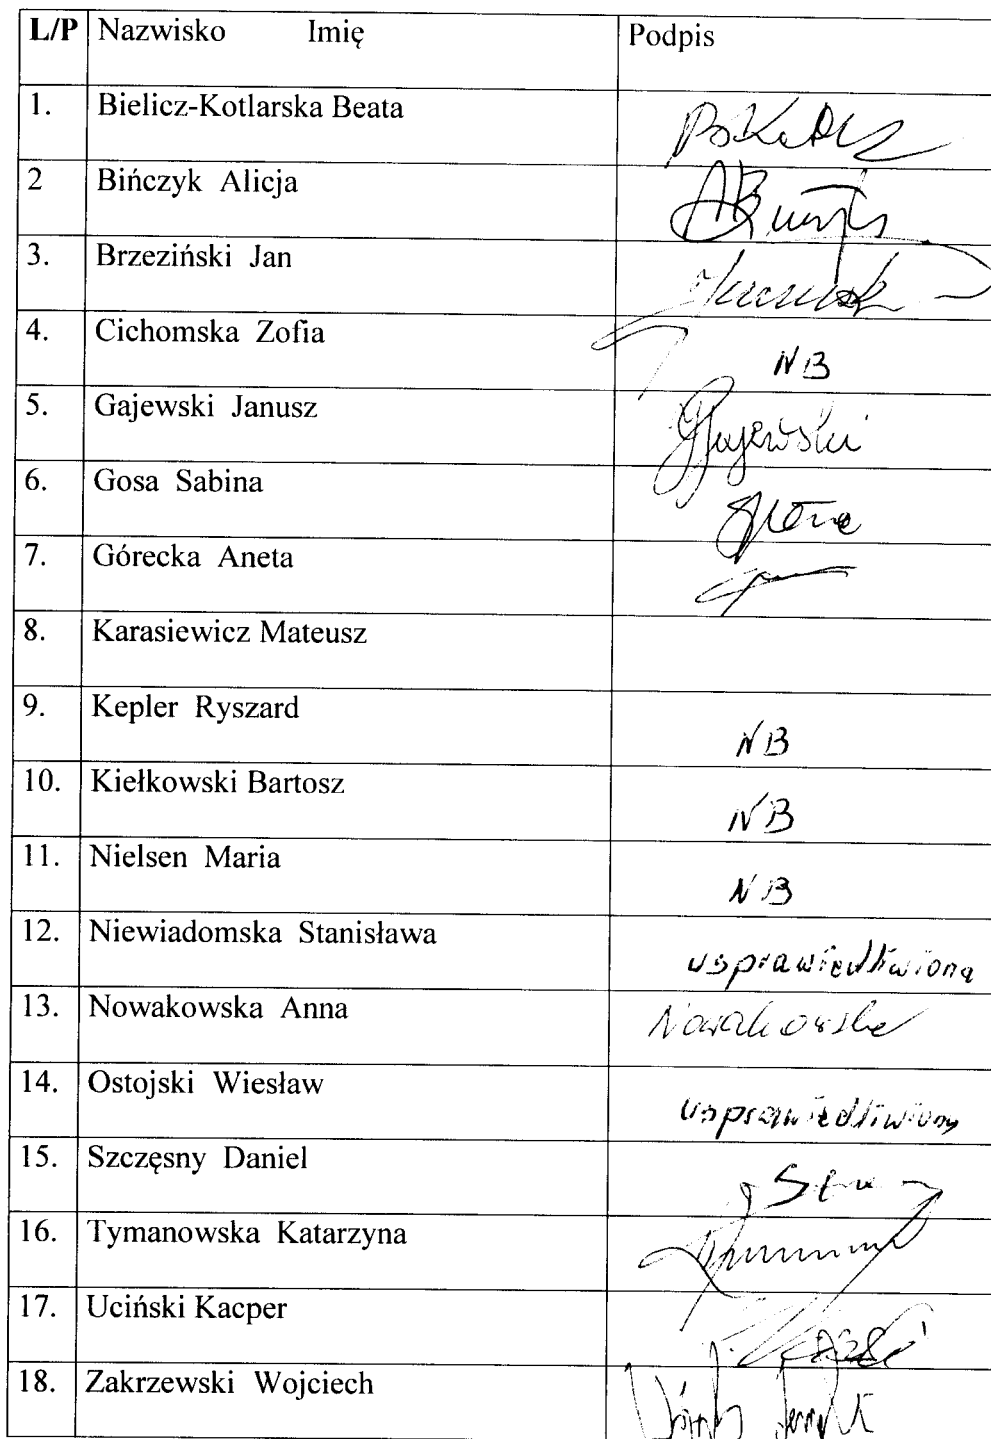 L/P Nazwisko Imię Podpis
1. Bielicz-Kotlarska Beata
2 Bińczyk Alicja
3. Brzeziński Jan
4. Cichomska Zofia NB
5. Gajewski Janusz Gajewski
6. Gosa Sabina
7. Górecka Aneta
8. Karasiewicz Mateusz
9. Kepler Ryszard NB
10. Kiełkowski Bartosz NB
11. Nielsen Maria NB
12. Niewiadomska Stanisława usprawiedliwiona
13. Nowakowska Anna Nowakowska
14. Ostojski Wiesław usprawiedliwiony
15. Szczęsny Daniel
16. Tymanowska Katarzyna
17. Uciński Kacper
18. Zakrzewski Wojciech